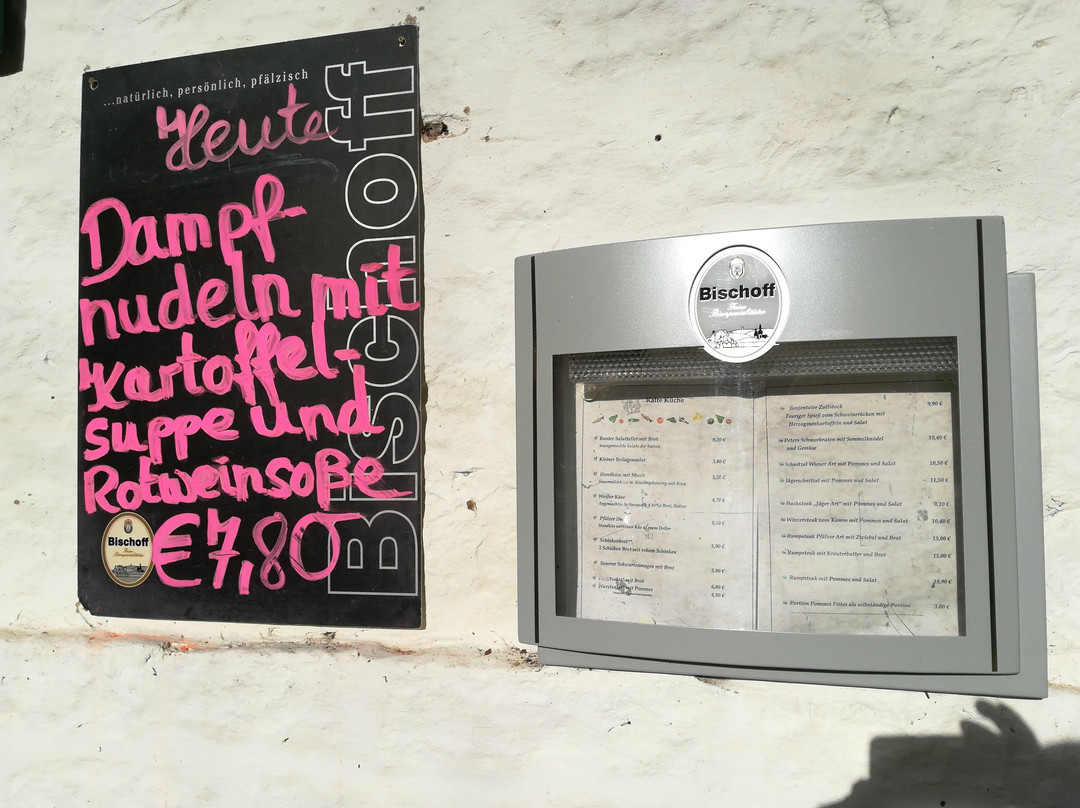 ...natürlich, persönlich, pfälzisch
Heute
Dampf-
nudeln mit
Kartoffel-
suppe und
Rotweinsoße
€7,80
Bischoff
Bischoff
Bischoff
Kalte Küche
Bunter Salatteller mit Brot 8,20 €
hausgemachte Salate der Saison
Kleiner Beilagensalat 3,40 €
Handkäse mit Musik
Weißer Käse
Pfälzer
Schinkenbrot 5,90 €
2 Scheiben Brot mit rohem Schinken
Saurer Schwartenmagen mit Brot 5,80 €
mit Brot 6,80 €
Wurstsalat mit Pommes 8,80 €
Benjentaler Zollstock 9,90 €
Feuriger Spieß vom Schweinerücken mit
Herzoginkartoffeln und Salat
Peters Schmorbraten mit Semmelknödel 10,40 €
und Gemüse
Schnitzel Wiener Art mit Pommes und Salat 10,50 €
Jägerschnitzel mit Pommes und Salat 11,50 €
Hacksteak „Jäger Art" mit Pommes und Salat 9,10 €
Winzersteak vom Kamm mit Pommes und Salat 10,40 €
Rumpsteak Pfälzer Art mit Zwiebel und Brot 15,00 €
Rumpsteak mit Kräuterbutter und Brot 15,00 €
Rumpsteak mit Pommes und Salat
Portion Pommes Frites als selbständige Portion 3,00 €